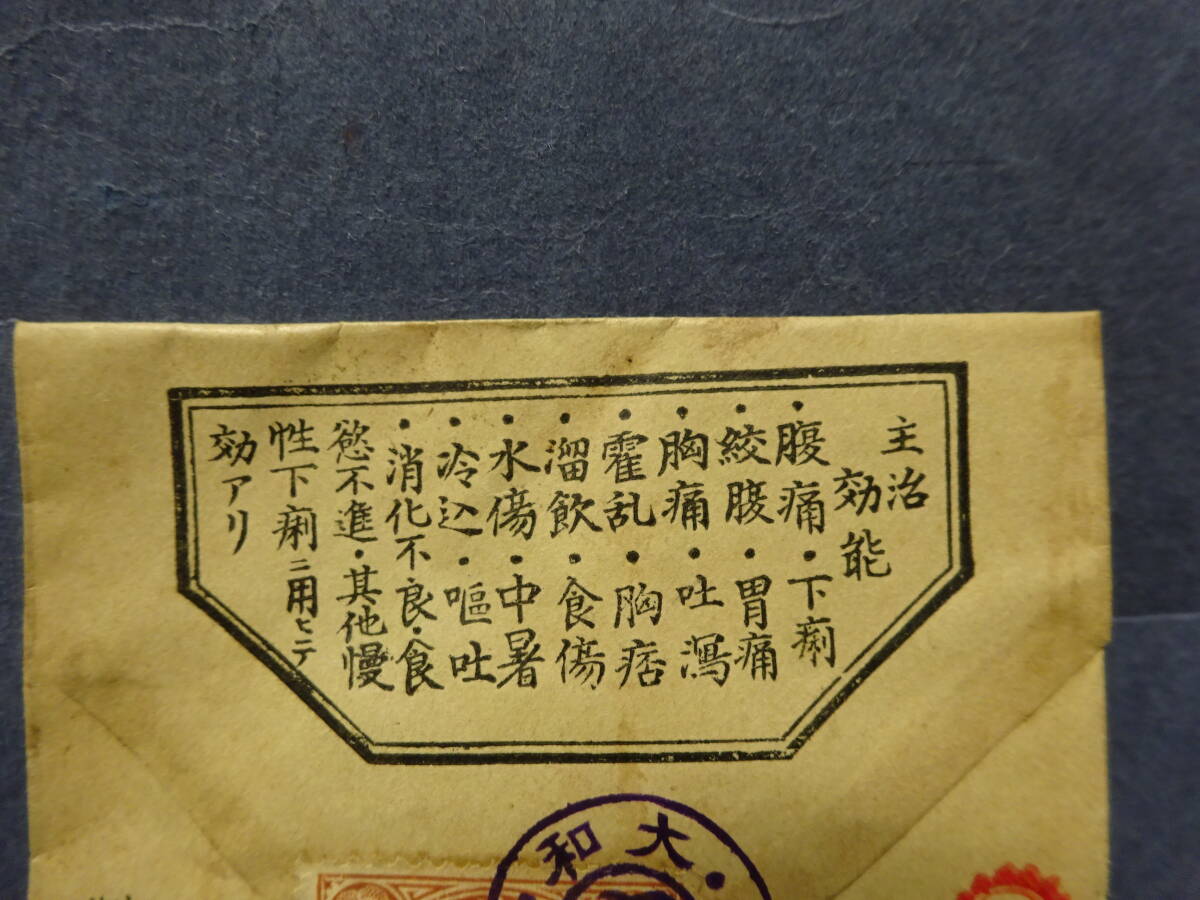 主治
効能
・腹痛・下痢
・絞腹・胃痛
・胸痛・吐瀉
・霍乱・胸痞
・溜飲・食傷
・水傷・中暑
・冷込・嘔吐
・消化不良・食
慾不進・其他慢
性下痢ニ用ヒテ
効アリ
大和